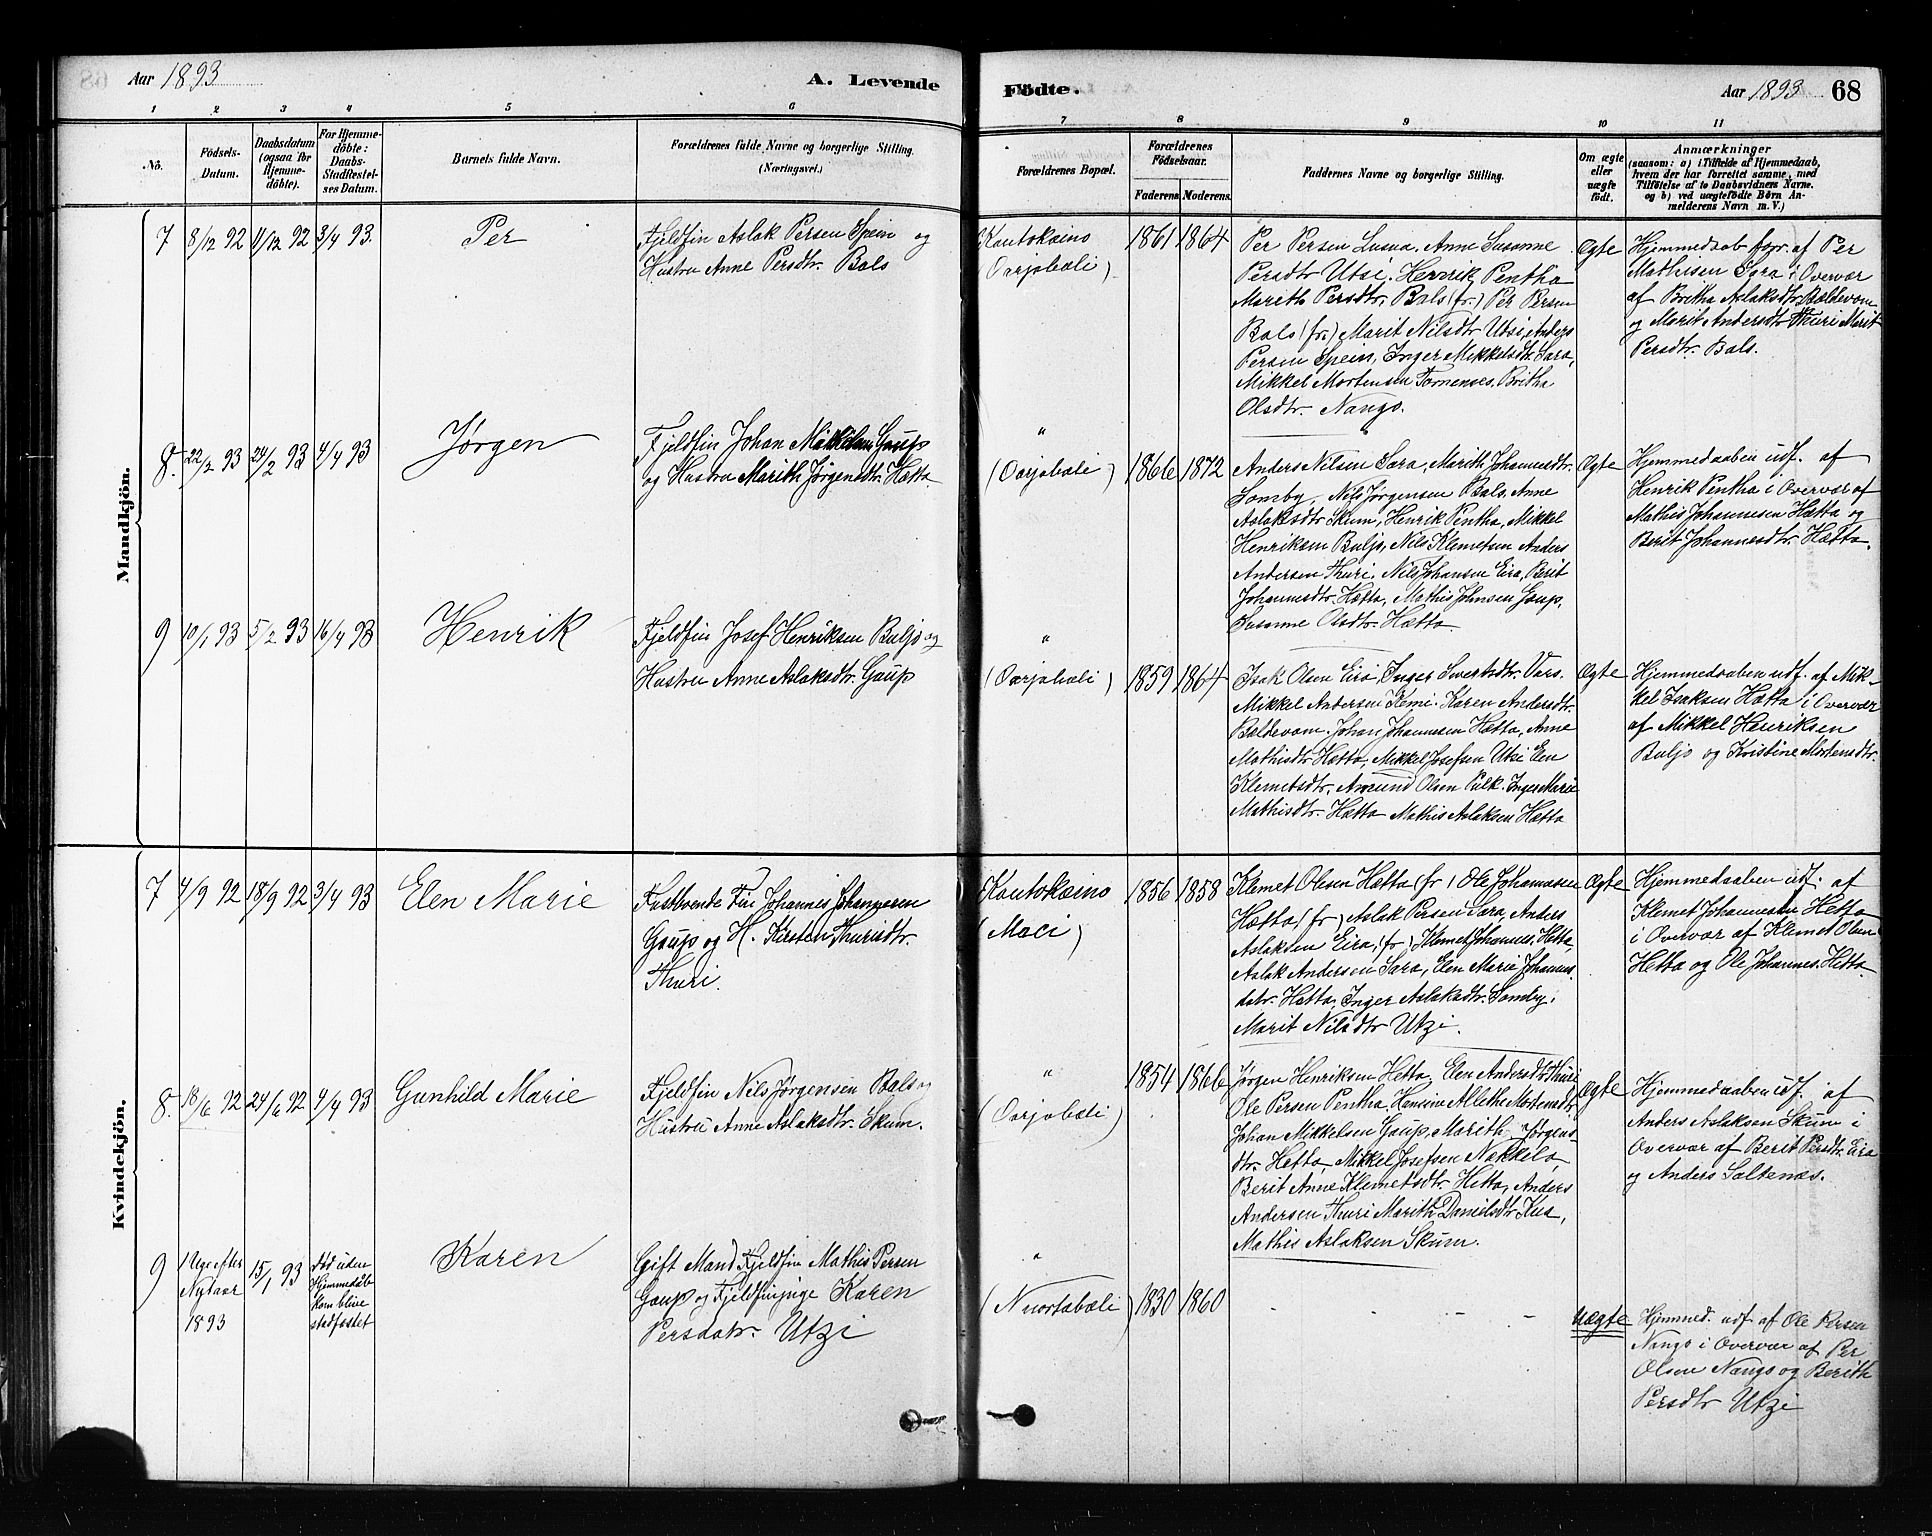 Aar 1893
A. Levende
Födte.
Aar 1893
68
1 2 3 4 5 6 7 8 9 10 11
No.
Födsels-
Datum.
Daabsdatum
(ogsaa for
Hjemme-
döbte).
For Hjemme-
döbte:
Daabs-
Stadfestel-
ses Datum.
Barnets fulde Navn.
Forældrenes fulde Navne og borgerlige Stilling.
(Næringsvei.)
Forældrenes Bopæl.
Forældrenes
Födselsaar.
Faderens
Moderens
Faddernes Navne og borgerlige Stilling.
Om ægte
eller
uægte
födt.
Anmærkninger
(saasom: a) i Tilfælde af Hjemmedaab,
hvem der har forrettet samme, med
Tilföielse af to Daabsvidners Navne.
og b) ved uægtefödte Börn An-
melderens Navn m. V.)
Mandkjön.
7 8/12 92 11/12 92 3/4 93.
Per
Fjeldfin Aslak Persen Spein og
Hustru Anne Persdtr. Bals
Kautokeino
(Oarjobæli)
1861 1864
Per Persen Lusua, Anne Susanne
Persdtr Utsi. Henrik Pentha
Marith Persdtr. Bals (fr.) Per Persen
Bals (fr.) Marit Nilsdtr Utsi, Anders
Persen Spein, Inger Mikkelsdtr. Sara,
Mikkel Mortensen Tornenses. Britha
Olsdtr. Nango.
Ægte
Hjemmedaab fogr. af Per
Mathisen Sara i Overvær
af Britha Aslaksdtr. Bældevom
og Marit Andersdtr Thuri Marit
Persdtr. Bals.
8. 22/2 93 24/2 93 4/4 93
Jørgen
Fjeldfin Johan Mikkelsen Gaup
og Hustru Marith Jørgensdtr. Hætta
"
(Oarjobæli)
1866 1872
Anders Nilsen Sara, Marith Johannesdtr.
Somby, Nils Jørgensen Bals, Anne
Aslaksdtr Skum, Henrik Pentha, Mikkel
Henriksen Buljo, Nils Klemetsen Anders
Andersen Thuri, Nils Johansen Eira, Berit
Johannesdtr. Hætta, Mathis Johnsen Gaup,
Susanne Olsdtr. Hætta.
Ægte
Hjemmedaaben udf. af
Henrik Pentha i Overvær af
Mathis Johannesen Hætta og
Berit Johannesdtr. Hætta.
9 10/1 93 5/2 93 16/4 93
Henrik
Fjeldfin Josef Henriksen Buljo og
Hustru Anne Aslaksdtr. Gaup
"
(Oarjobæli)
1859 1864
Isak Olsen Eira, Inger Sivertsdtr. Vars.
Mikkel Andersen Kemi. Karen Andersdtr.
Bældevom. Johan Johannesen Hætta, Anne
Mathisdtr Hætta, Mikkel Josefsen Utsi Elen
Klemetsdtr. Amund Olsen Pulk. Inger Marie
Mathisdtr. Hætta Mathis Aslaksen Hætta
Ægte
Hjemmedaaben udf. af Mik-
kel Isaksen Hætta i Overvær
af Mikkel Henriksen
Buljo og Kristine Mortensdtr.
Kvindekjön.
7 4/9 92 18/9 92 3/4 93
Elen Marie
Fastboende Fin Johannes Johannesen
Gaup og H. Kirsten Thurisdtr.
Thuri.
Kautokeino
(Maci)
1856 1858
Klemet Olesen Hætta (fr) Ole Johannesen
Hætta (fr) Aslak Persen Sara, Anders
Aslaksen Eira, (fr) Klemet Johannes. Hetta,
Aslak Andersen Sara, Elen Marie Johannes-
datr. Hætta, Inger Aslaksdtr. Somby.
Marit Nilsdtr Utzi.
Ægte
Hjemmedaaben udf. af
Klemet Johannesen Hetta
i Overvær af Klemet Olsen
Hetta og Ole Johannes. Hetta
8. 18/6 92 24/6 92 9/4 93
Gunhild Marie
Fjeldfin Nils Jørgensen Bals og
Hustru Anne Aslaksdtr. Skum.
"
(Oarjobæli)
1854 1866
Jørgen Henriksen Hetta, Elen Andersdtr Thuri
Ole Persen Pentha, Hansine Alethe Mortensdtr
Johan Mikkelsen Gaup, Marith Jørgens-
dtr. Hetta, Mikkel Josefsen Nækkela
Berit Anne Klemetsdtr. Hetta, Anders
Andersen Thuri Marith Danielsdtr Kua,
Mathis Aslaksen Skum.
Ægte
Hjemmedaaben udf. af
Anders Aslaksen Skum i
Overvær af Berit Persdtr. Eira
og Anders Saltenæs.
9
1 Uge efter
Nytaar
1893
15/1 93
død uden
Hjemmedåb
kom blive
stadfæstet
Karen
Gift Mand Fjeldfin Mathis Persen
Gaup og Fjeldfinpige Karen
Persdatr. Utzi
"
(Nuortabæli)
1830 1860
- - - -
Uægte
Hjemmed. udf. af Ole Persen
Nango i Overvær af Per
Olsen Nango og Berith
Persdtr Utzi